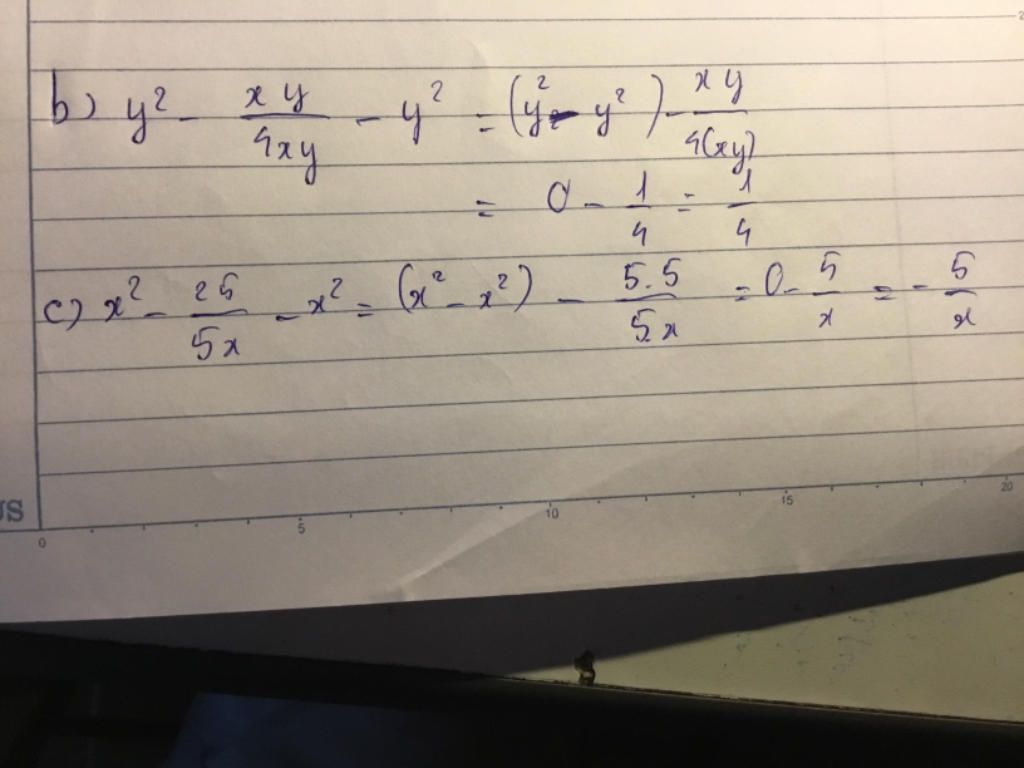 b) y² - xy/4xy - y² = (y² - y²) - xy/4(xy)
= 0 - 1/4 = 1/4
c) x² - 25/5x - x² = (x² - x²) - 5.5/5x = 0 - 5/x = - 5/x
US
0 5 10 15 20